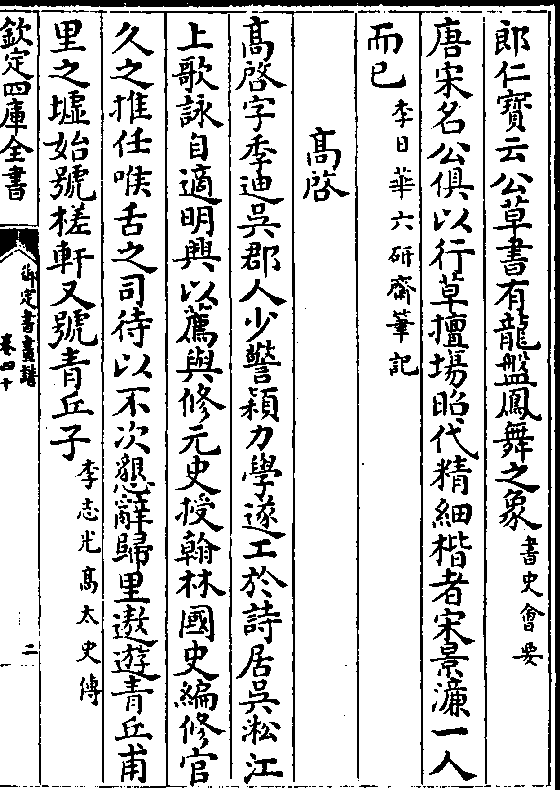 郎仁寶云公草書有龍盤鳳舞之象書史會要
唐宋名公俱以行草擅場昭代精細楷者宋景濂一人
而已李日華六研齋筆記
高啓
高啓字季迪吳郡人少警穎力學遂工於詩居吳淞江
上歌詠自適明興以薦與修元史授翰林國史編修官
久之推任喉舌之司待以不次懇辭歸里遨遊青丘甫
里之墟始號槎軒又號青丘子李志光高太史傳
欽定四庫全書
御定書畫譜
卷四十
二